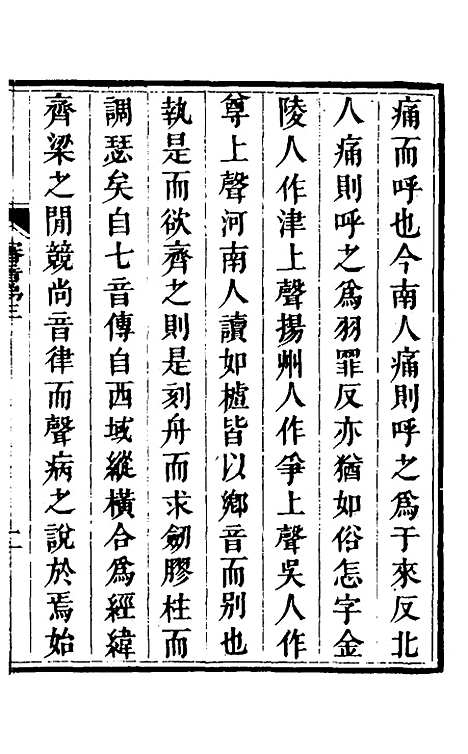 痛而呼也今南人痛則呼之爲于來反北
人痛則呼之爲羽罪反亦猶如俗怎字金
陵人作津上聲揚州人作爭上聲吳人作
尊上聲河南人讀如樝皆以鄉音而别也
執是而欲齊之則是刻舟而求劒膠柱而
調瑟矣自七音傳自西域縱橫合爲經緯
齊梁之閒競尚音律而聲病之說於焉始
審音弟三